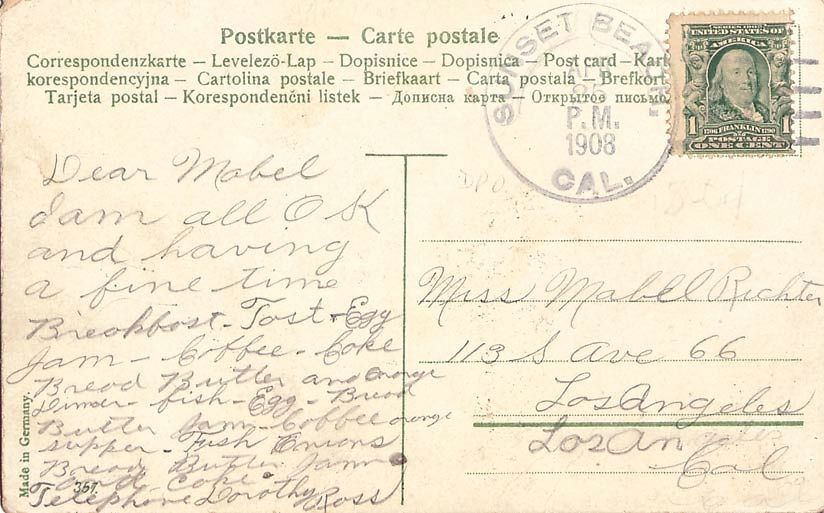 Postkarte — Carte postale
Correspondenzkarte – Levelező-Lap – Dopisnice – Dopisnica – Post card – Kart
korespondencyjna – Cartolina postale – Briefkaart – Carta postala – Brefkort
Tarjeta postal – Korespondenčni listek – Дописна карта – Открытое письмо
SUNSET BEACH.
25
P.M.
1908
CAL.
SERIES 1902
UNITED STATES OF
AMERICA
1706 FRANKLIN 1790
1 POSTAGE 1
ONE CENT
Dear Mabel
I am all O K
and having
a fine time
Breakbast - Tost - Egg
Jam - Coffee - Coke
Bread Butter and orange
Dinner - fish - Egg - Bread
Butter Jam - Coffee orange
supper - Fish Onions
Bread Butter Jam
and Coke
Telephone Dorothy Ross
Miss Mabel Richter
113 S Ave 66
Los Angeles
Los An
Cal
Made in Germany.
357